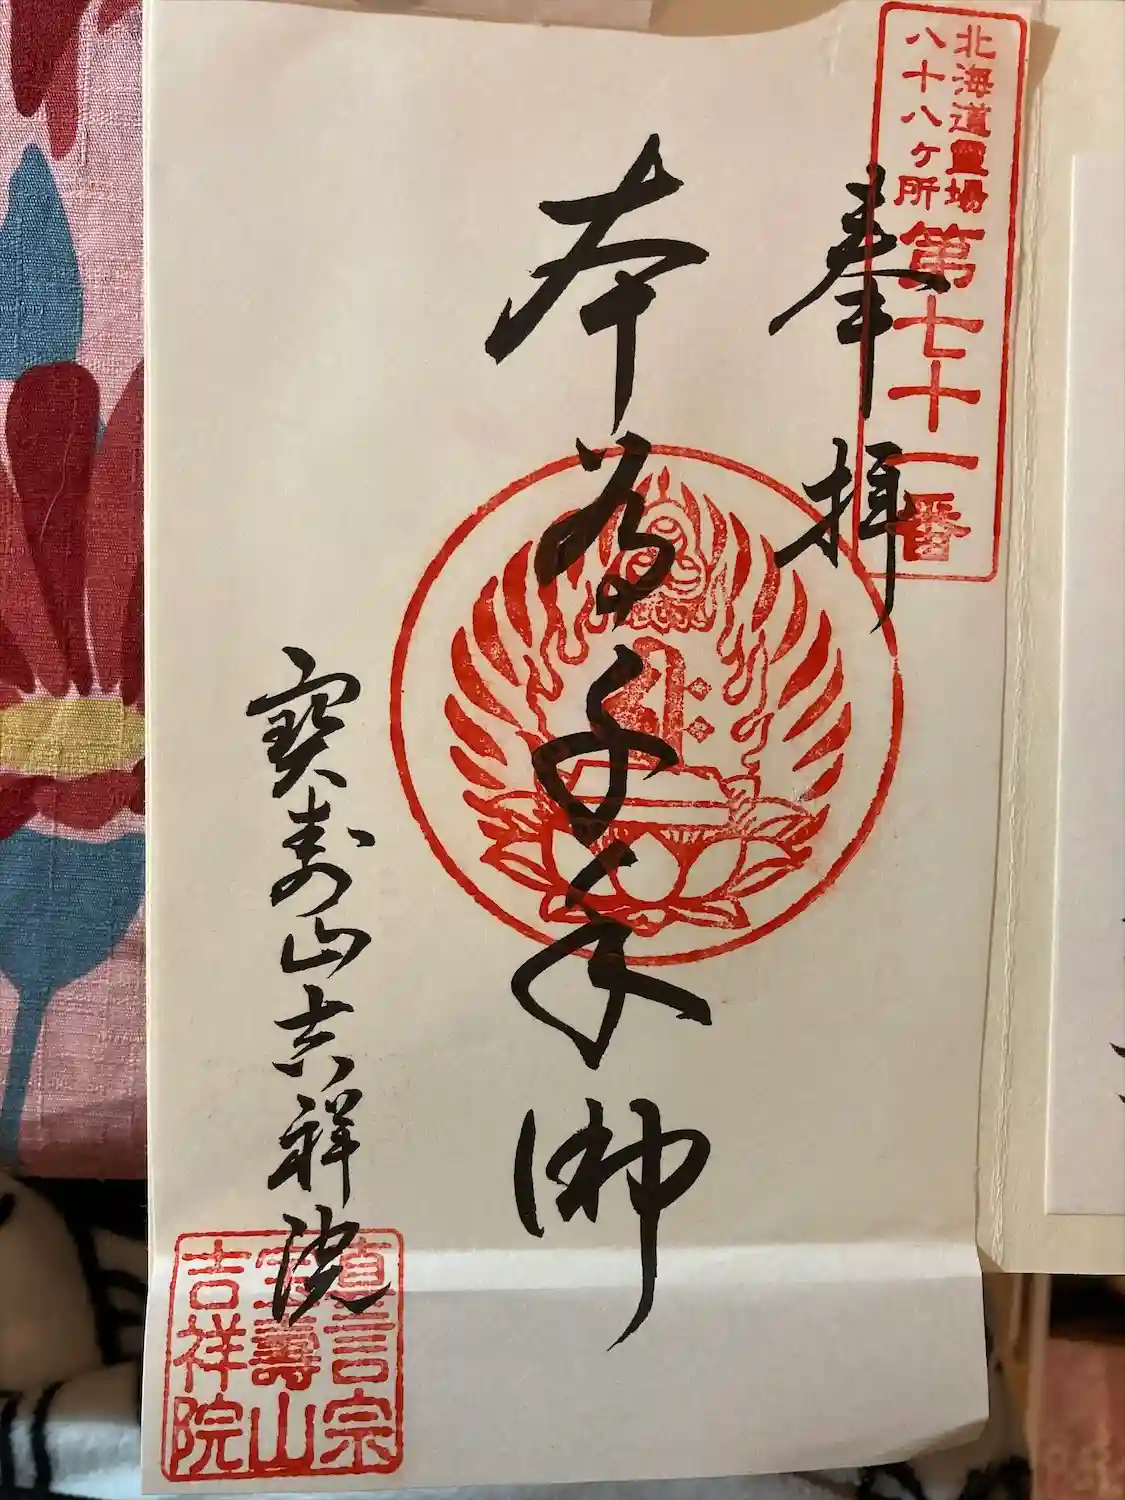 北海道霊場
八十八ヶ所
第七十一番
奉拝
本尊千手佛
寳寿山吉祥院
真言宗
宝壽山
吉祥院